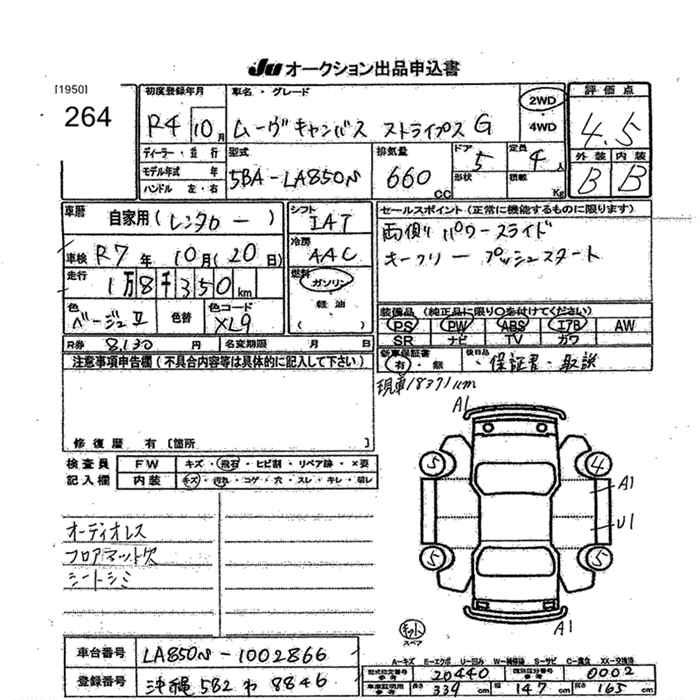 JU オークション出品申込書
[1950]
264
初度登録年月
R4 10月
車名・グレード
ムーヴキャンバス ストライプス G
2WD
4WD
評価点
4.5
外装 内装
B B
ディーラー・並行
モデル年式 年
ハンドル 左・右
型式
5BA-LA850S
排気量
660 CC
ドア
5
形状
定員
4人
積載
Kg
車歴
自家用(レンタカー)
車検 R7年10月(20日)
走行
1万8千350km
色
ベージュII
色替
色コード
XL9
R券 8,130
名変期限 月 日
シフト
IAT
冷房
AAC
燃料
ガソリン
軽油
( )
セールスポイント(正常に機能するものに限ります)
両側パワースライド
キーフリー プッシュスタート
装備品(純正品に限り○を付けてください)
PS PW ABS エアB AW
SR ナビ TV カワ
新車保証書
有・無
後日品
・保証書・取説
現車18371km
注意事項申告欄(不具合内容等は具体的に記入して下さい)
修復歴 有〔箇所 〕
検査員
記入欄
FW キズ・飛石・ヒビ割・リペア跡・×要
内装 キズ・汚れ・コゲ・穴・スレ・キレ・切レ
オーディオレス
フロアマット欠
シートシミ
A1
5 4
A1
U1
5 5
A1
キット
スペア
車台番号 LA850S-1002866
登録番号 沖縄 582 わ 8846
A-キズ E-エクボ U-凹み W-補修跡 S-サビ C-腐食 XX-交換済
型式指定番号 参考 20440
類別区分番号 参考 0002
車庫証明用 参考 長さ 339cm 幅 147cm 高さ 165cm